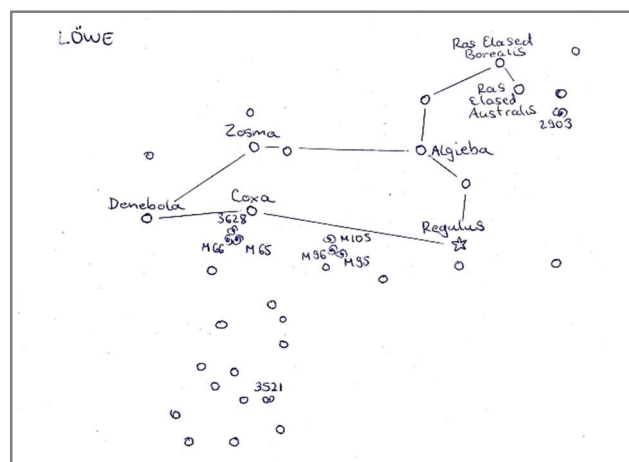 LÖWE
Ras Elased
Borealis
Ras
Elased
Australis
2903
Zosma
Algieba
Denebola
Coxa
3628
M66
M65
M105
M96
M95
Regulus
3521